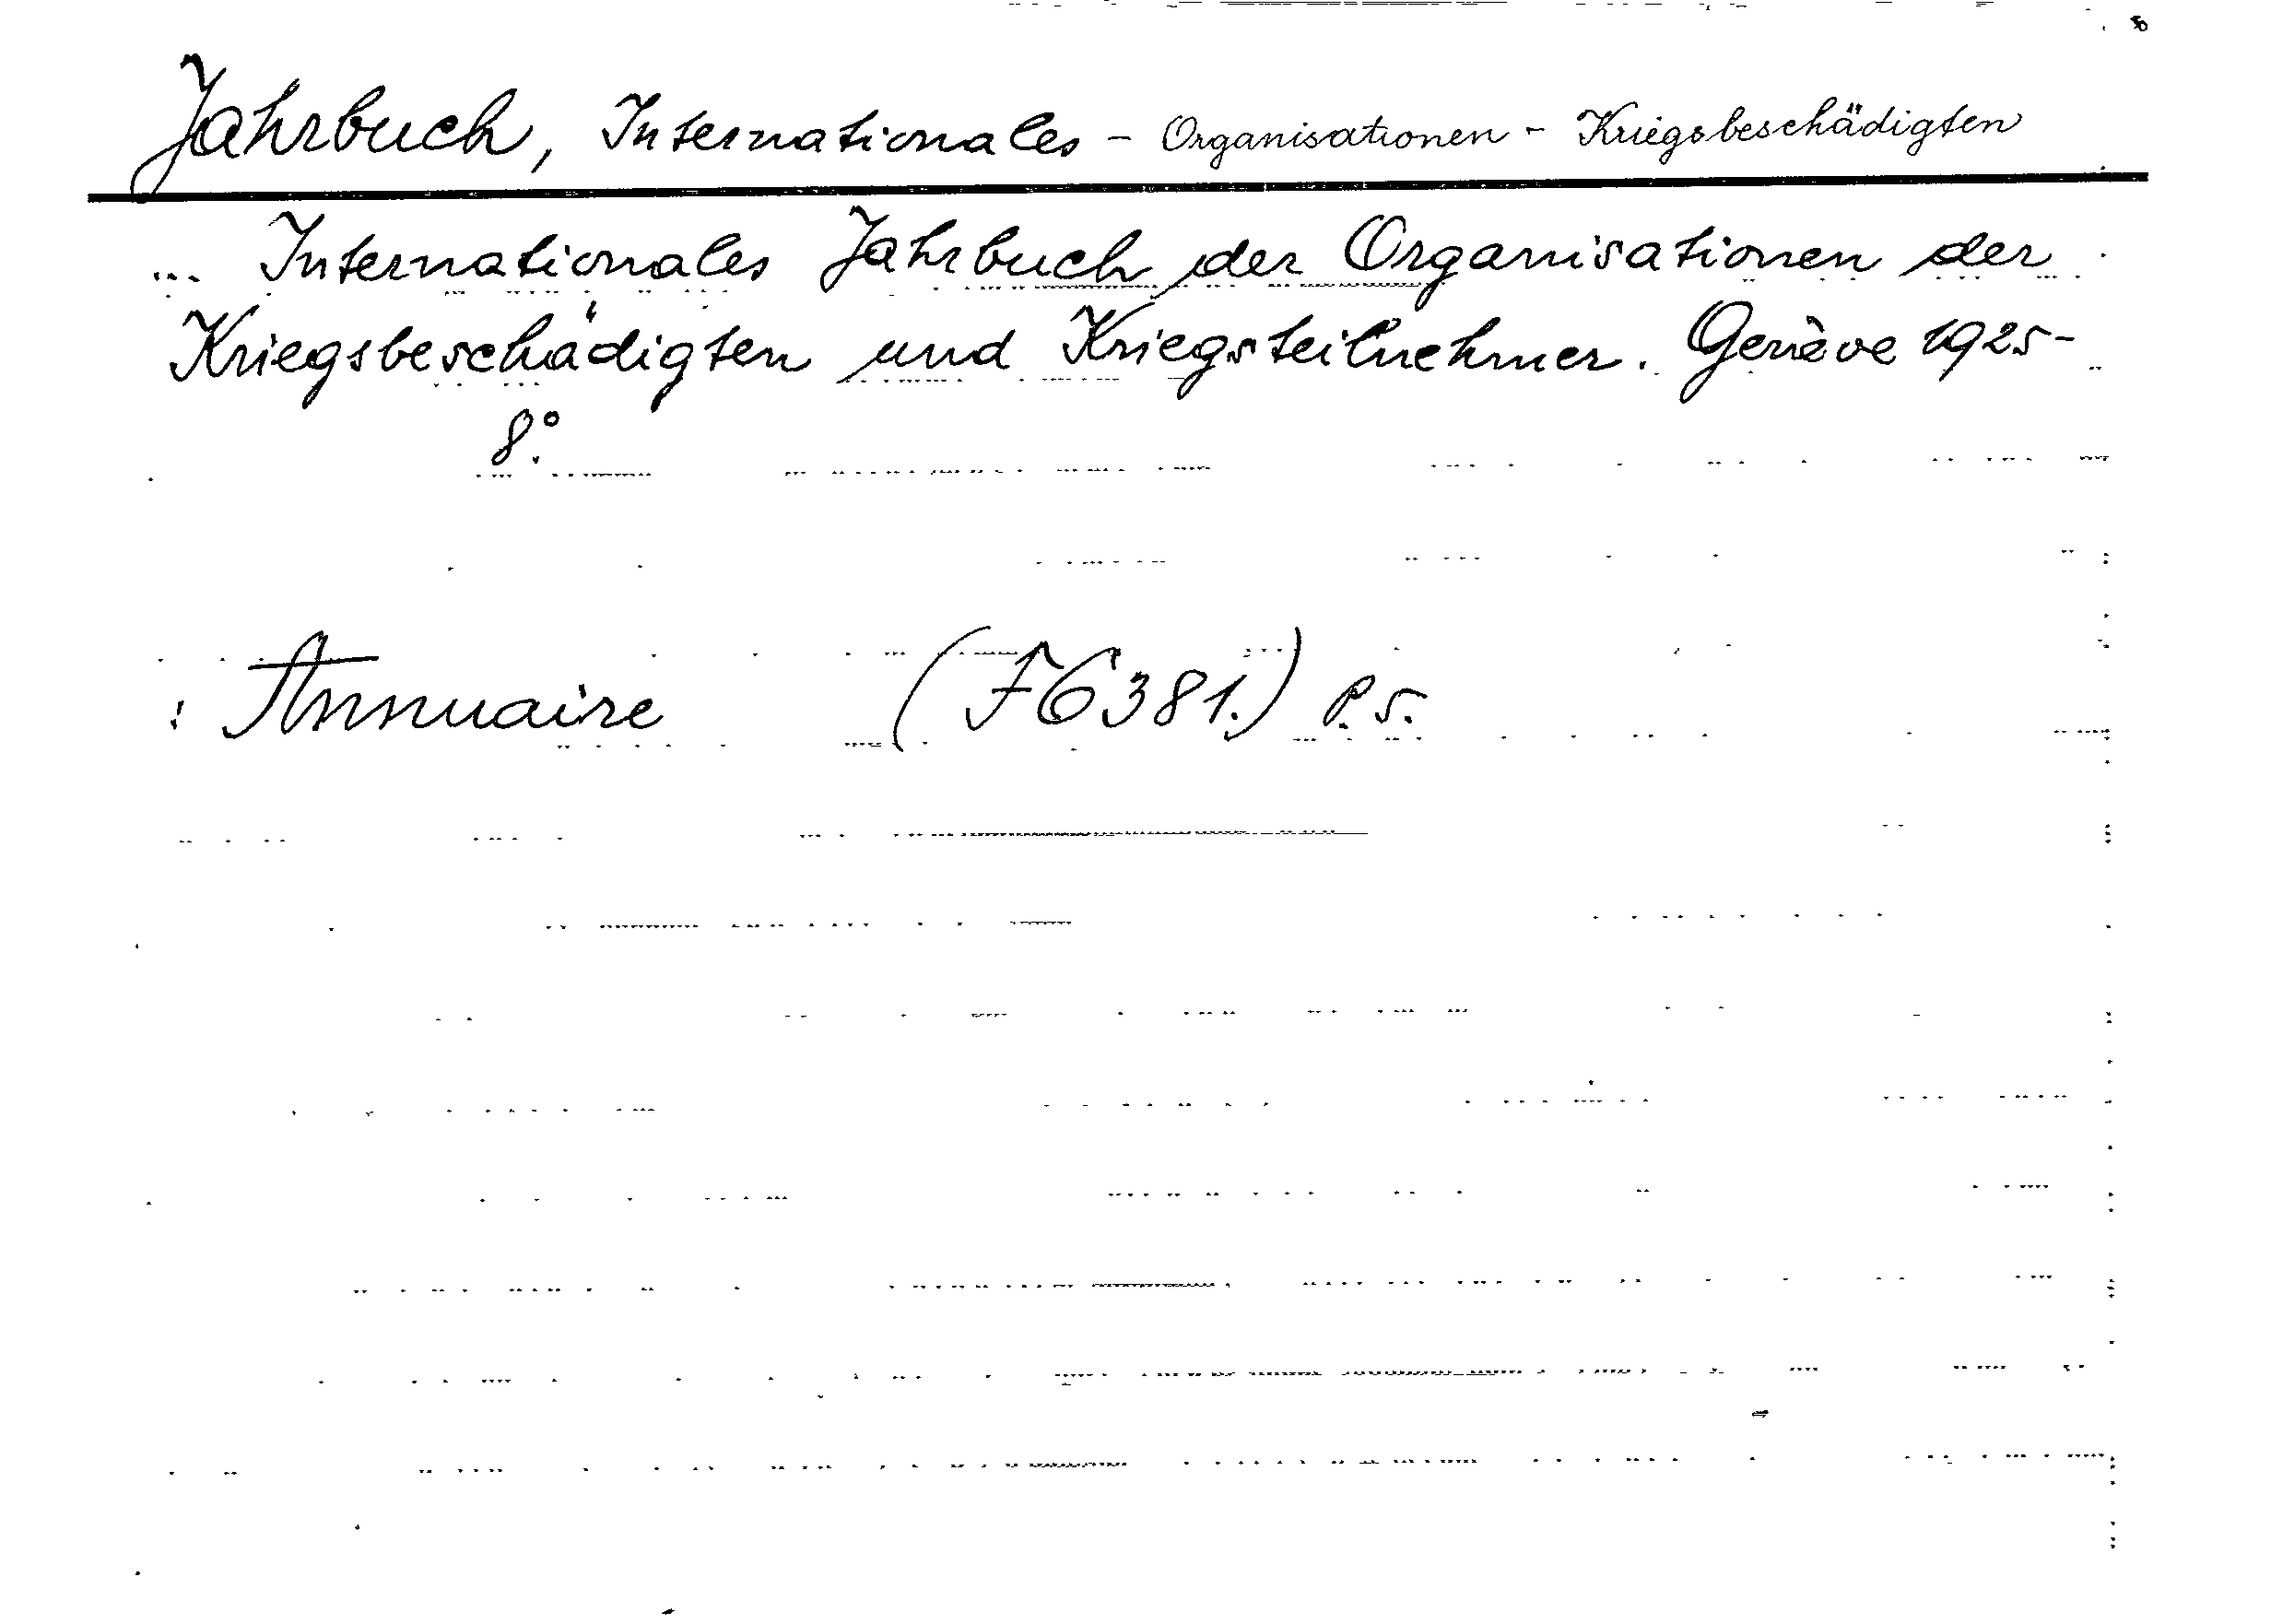 Jahrbuch, Internationales - Organisationen - Kriegsbeschädigten
... Internationales Jahrbuch der Organisationen der
Kriegsbeschädigten und Kriegsteilnehmer. Genève 1925-
8º.
: Annuaire (F6381.) P.S.